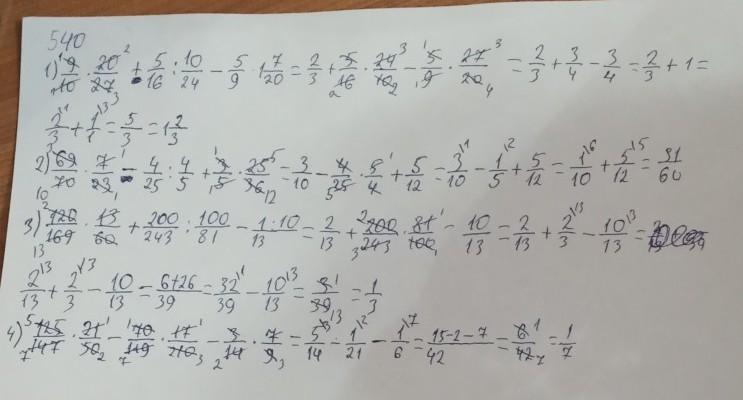 540
1) 9/10 · 20/27 + 5/16 : 10/24 - 5/9 · 1 7/20 = 2/3 + 5/16 · 24/10 - 5/9 · 27/20 = 2/3 + 3/4 - 3/4 = 2/3 + 1 =
2/3 + 1/1 = 5/3 = 1 2/3
2) 69/70 · 7/23 - 4/25 : 4/5 + 3/5 · 25/36 = 3/10 - 4/25 · 5/4 + 5/12 = 3/10 - 1/5 + 5/12 = 1/10 + 5/12 = 31/60
3) 120/169 · 13/60 + 200/243 : 100/81 - 1:10/13 = 2/13 + 200/243 · 81/100 - 10/13 = 2/13 + 2/3 - 10/13 =
2/13 + 2/3 - 10/13 = 6+26/39 = 32/39 - 10/13 = 3/39 = 1/3
4) 125/147 · 21/50 - 70/119 · 17/210 - 3/14 · 7/9 = 5/14 - 1/21 - 1/6 = 15-2-7/42 = 6/42 = 1/7